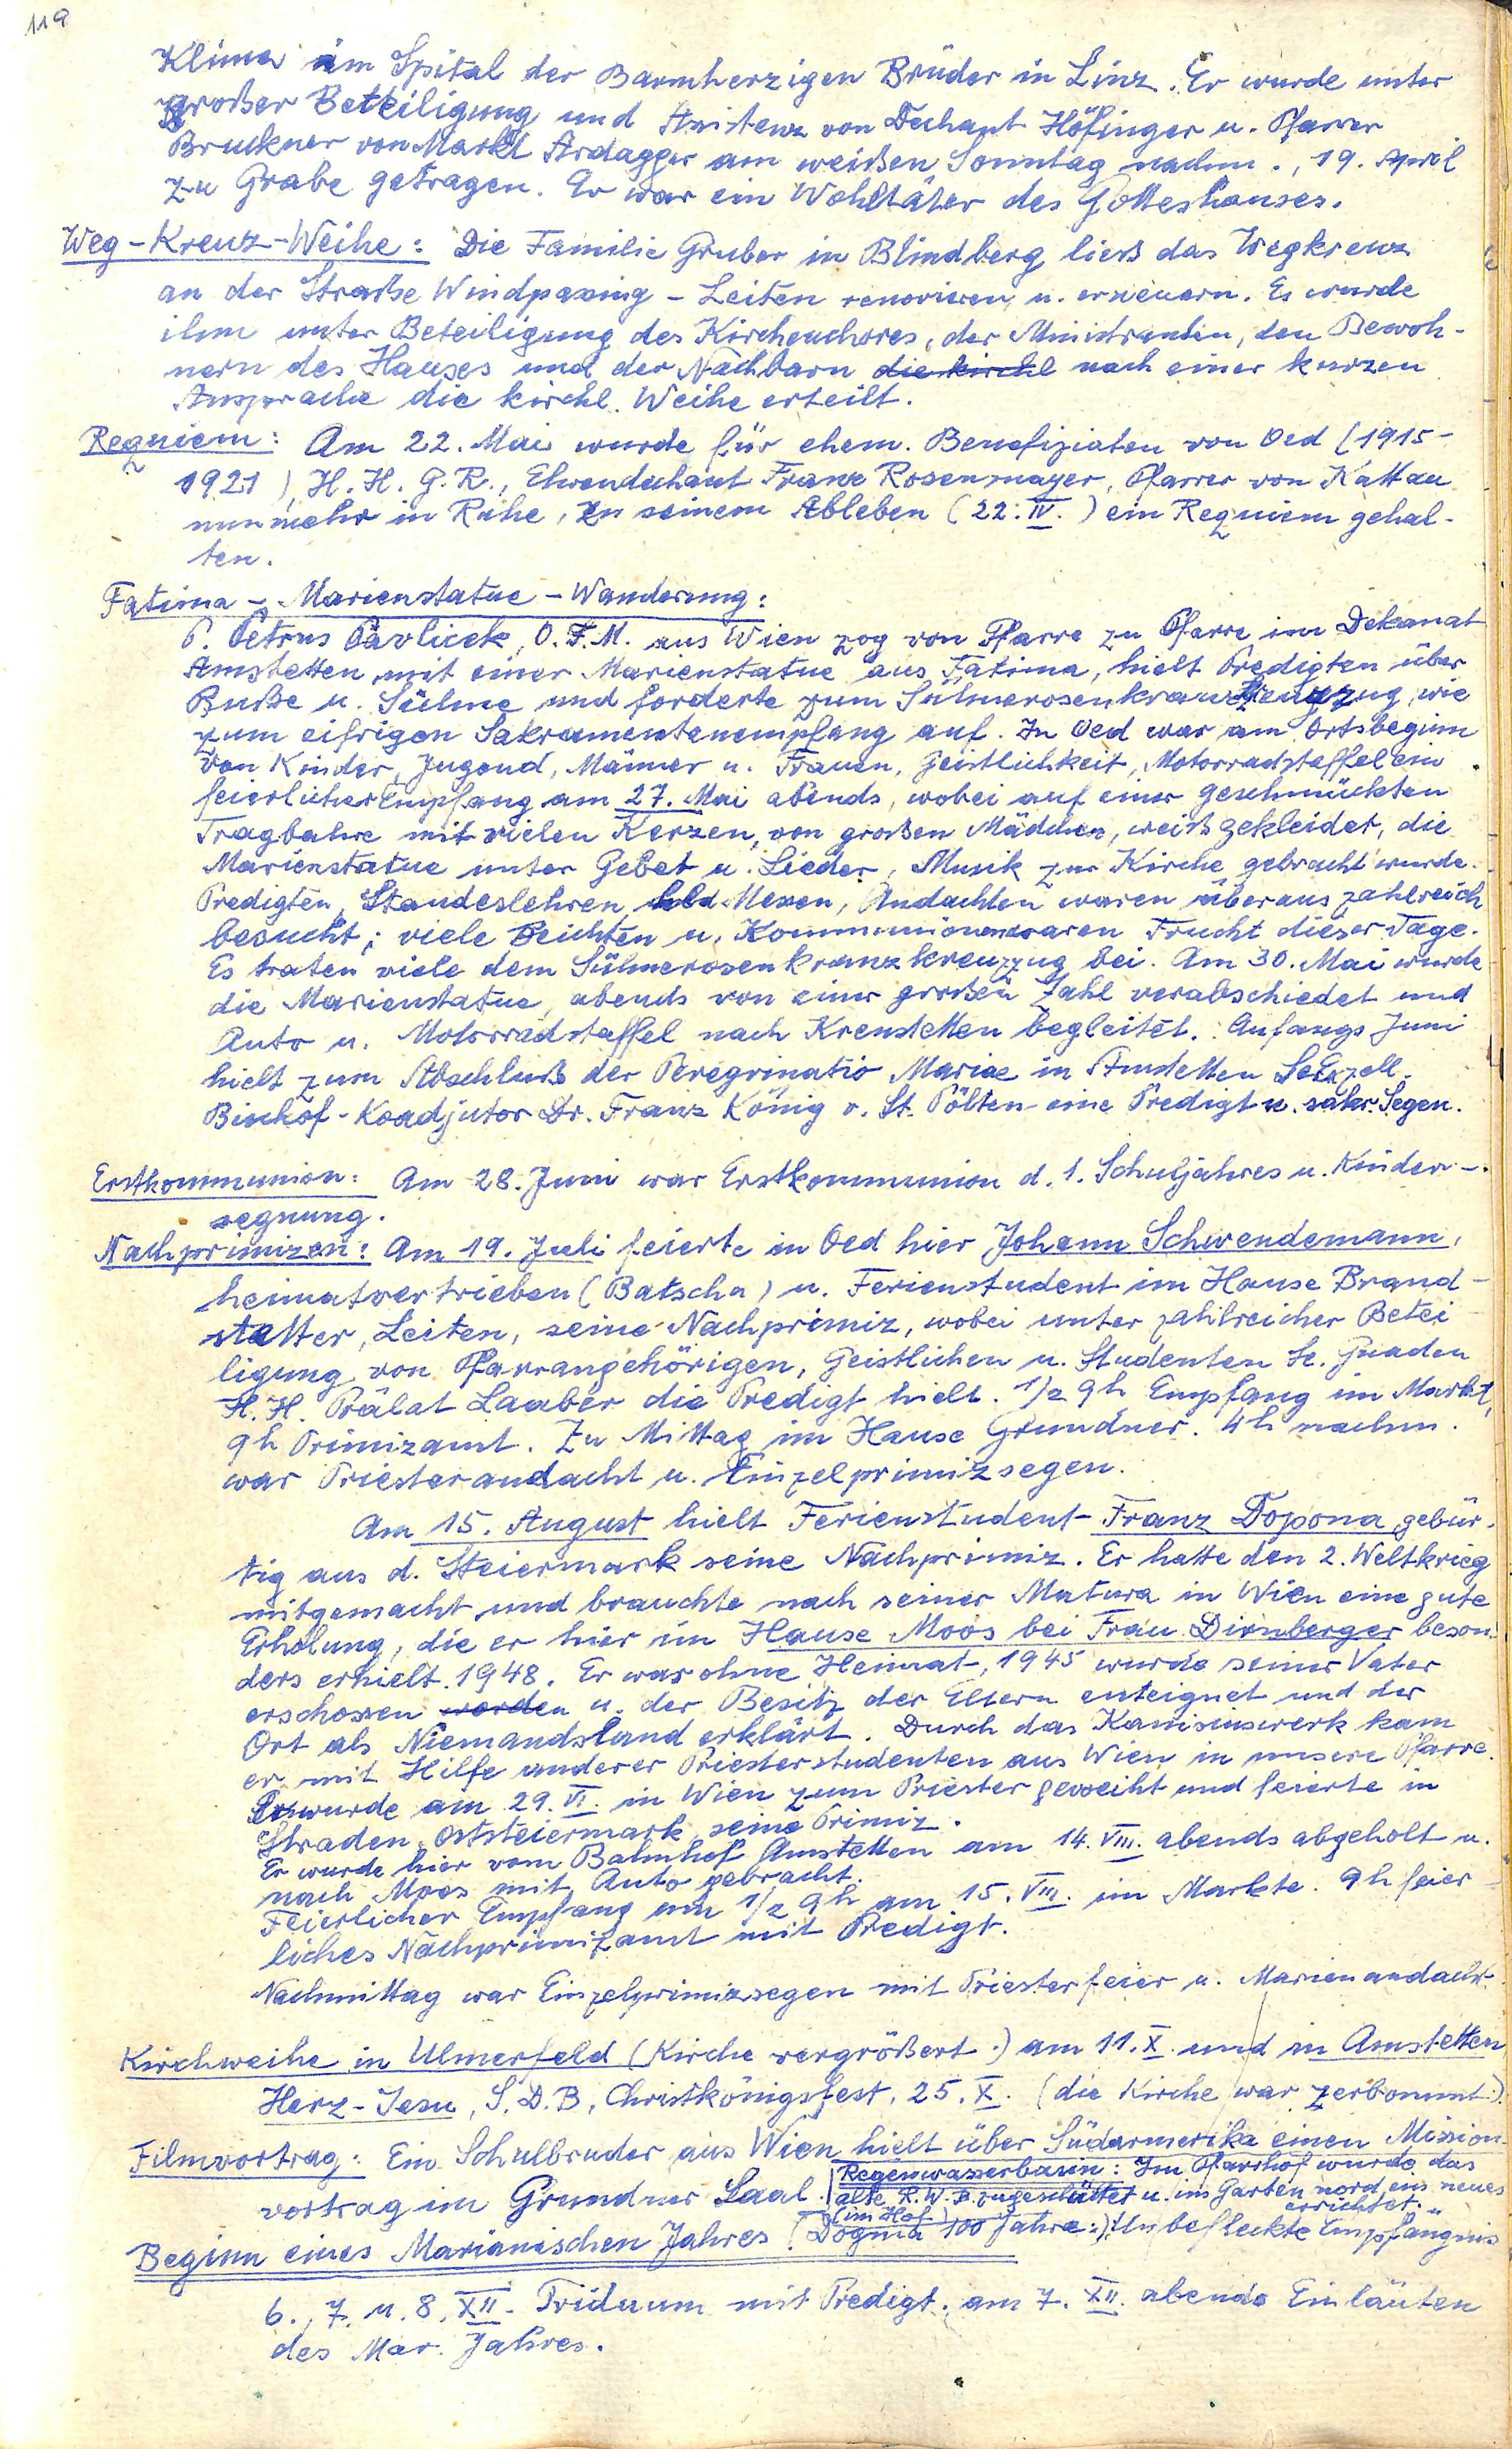 119
Klima im Spital der Barmherzigen Brüder in Linz. Er wurde unter
großer Beteiligung und Assistenz von Dechant Höfinger u. Pfarrer
Bruckner von Markt Ardagger am weißen Sonntag nachm., 19. April
zu Grabe getragen. Er war ein Wohltäter des Gotteshauses.
Weg-Kreuz-Weihe: Die Familie Gruber in Blindberg ließ das Wegkreuz
an der Straße Windpassing - Leiten renovieren u. erneuern. Es wurde
ihm unter Beteiligung des Kirchenchores, der Ministranten, den Bewoh-
nern des Hauses und der Nachbarn die kirchl nach einer kurzen
Ansprache die kirchl. Weihe erteilt.
Requiem: Am 22. Mai wurde für ehem. Benefiziaten von Oed (1915-
1921), H. H. G. R., Ehrendechant Franz Rosenmayer, Pfarrer von Kattau
nunmehr in Ruhe, zu seinem Ableben (22. IV.) ein Requiem gehal-
ten.
Fatima - Marienstatue - Wanderung:
P. Petrus Pavlicek, O. F. M. aus Wien zog von Pfarre zu Pfarre im Dekanat
Amstetten mit einer Marienstatue aus Fatima, hielt Predigten über
Buße u. Sühne und forderte zum Sühnerosenkranzkreuzzug, wie
zum eifrigen Sakramentenempfang auf. In Oed war am Ortsbeginn
von Kinder, Jugend, Männer u. Frauen, Geistlichkeit, Motorradstaffel ein
feierlicher Empfang am 27. Mai abends, wobei auf einer geschmückten
Tragbahre mit vielen Kerzen, von großen Mädchen, weiß gekleidet, die
Marienstatue unter Gebet u. Lieder, Musik zur Kirche gebracht wurde.
Predigten, Standeslehren, Messen, Andachten waren überaus zahlreich
besucht; viele Beichten u. Kommunionen waren Frucht dieser Tage.
Es traten viele dem Sühnerosenkranzkreuzzug bei. Am 30. Mai wurde
die Marienstatue, abends von einer großen Zahl verabschiedet und
Auto u. Motorradstaffel nach Krenstetten begleitet. Anfangs Juni
hielt zum Abschluß der Peregrinatio Mariae in Amstetten Se Exzell.
Bischof-Koadjutor Dr. Franz König v. St. Pölten eine Predigt u. sakr. Segen.
Erstkommunion: Am 28. Juni war Erstkommunion d. 1. Schuljahres u. Kinder-
segnung.
Nachprimizen: Am 19. Juli feierte in Oed hier Johann Schwendemann,
heimatvertrieben (Batscha) u. Ferienstudent im Hause Brand-
stetter, Leiten, seine Nachprimiz, wobei unter zahlreicher Betei
ligung von Pfarrangehörigen, Geistlichen u. Studenten Se. Gnaden
H. H. Prälat Laaber die Predigt hielt. 1/2 9h Empfang im Markt,
9h Primizamt. Zu Mittag im Hause Grundner. 4h nachm.
war Priesterandacht u. Einzelprimizsegen.
Am 15. August hielt Ferienstudent Franz Dopona, gebür-
tig aus d. Steiermark seine Nachprimiz. Er hatte den 2. Weltkrieg
mitgemacht und brauchte nach seiner Matura in Wien eine gute
Erholung, die er hier im Hause Moos bei Frau Dirnberger beson
ders erhielt 1948. Er war ohne Heimat, 1945 wurde seiner Vater
erschossen worden u. der Besitz der Eltern enteignet und der
Ort als Niemandsland erklärt. Durch das Kanisiuswerk kam
er mit Hilfe anderer Priesterstudenten aus Wien in unsere Pfarre.
Er wurde am 29. VI. in Wien zum Priester geweiht und feierte in
Straden, Oststeiermark seine Primiz.
Er wurde hier vom Bahnhof Amstetten am 14. VIII. abends abgeholt u.
nach Moos mit Auto gebracht.
Feierlicher Empfang um 1/2 9h am 15. VIII. im Markte. 9h feier-
liches Nachprimizamt mit Predigt.
Nachmittag war Einzelprimizsegen mit Priesterfeier u. Marienandacht.
Kirchweihe in Ulmerfeld (Kirche vergrößert.) am 11. X. und in Amstetten
Herz-Jesu, S. D. B, Christkönigsfest, 25. X. (die Kirche war zerbommt.)
Filmvortrag: Ein Schulbruder aus Wien hielt über Südamerika einen Mission-
vortrag im Grundner Saal.
Regenwasserbassin: Im Pfarrhof wurde das
alte R. W. B. zugeschüttet u. im Garten nord ein neues
(im Hof) errichtet.
Beginn eines Marianischen Jahres (Dogma 100 Jahre:) Unbefleckte Empfängnis
6., 7. u. 8. XII. Triduum mit Predigt. am 7. XII. abends Einläuten
des Mar. Jahres.